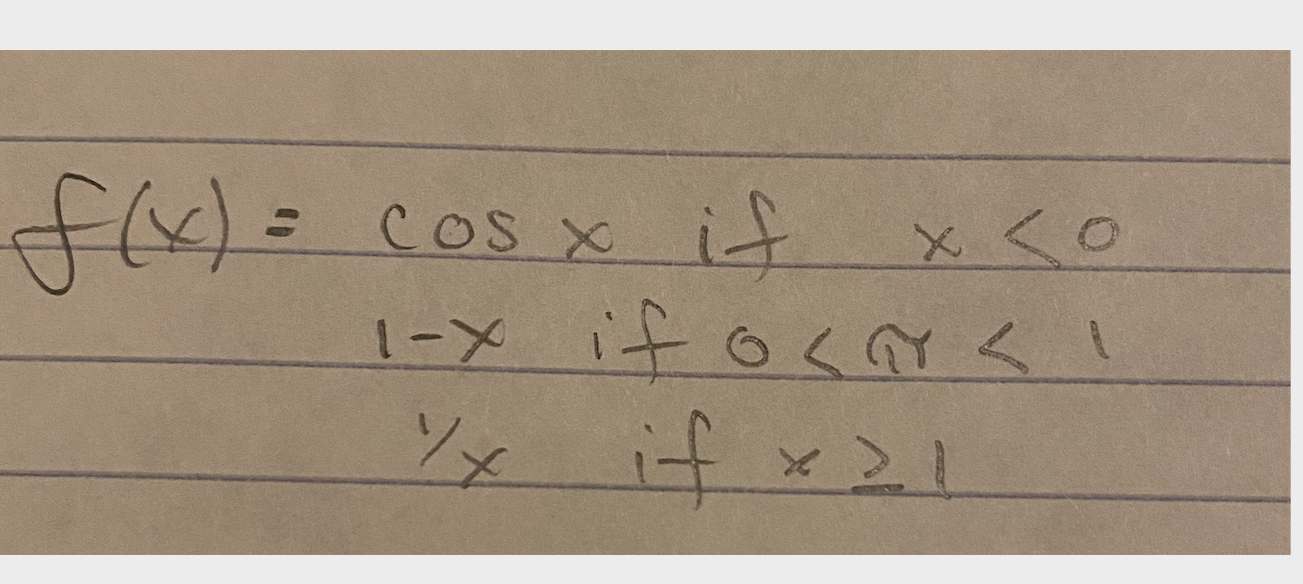 f(x) = cos x if x < 0
1-x if 0 < x < 1
1/x if x ≥ 1